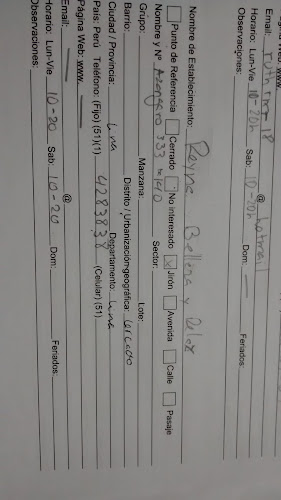 Página Web: www.
Email: ruth mr 18 @ hotmail
Horario: Lun-Vie 10-20h Sab: 9-20h Dom: — Feriados:
Observaciones:
Nombre de Establecimiento: Reyna Belleza y Relax
Punto de Referencia Cerrado No interesado Jirón Avenida Calle Pasaje
Nombre y Nº Azangaro 333
Grupo: Manzana: Sector: Lote:
Barrio: Distrito / Urbanización-geográfica: Cercado
Ciudad / Provincia: Lima Departamento: Lima
País: Perú Teléfono: (Fijo) (51)(1) 4283838 (Celular) (51)
Página Web: www.
Email: @
Horario: Lun-Vie 10-20 Sab: 10-20 Dom: Feriados:
Observaciones: